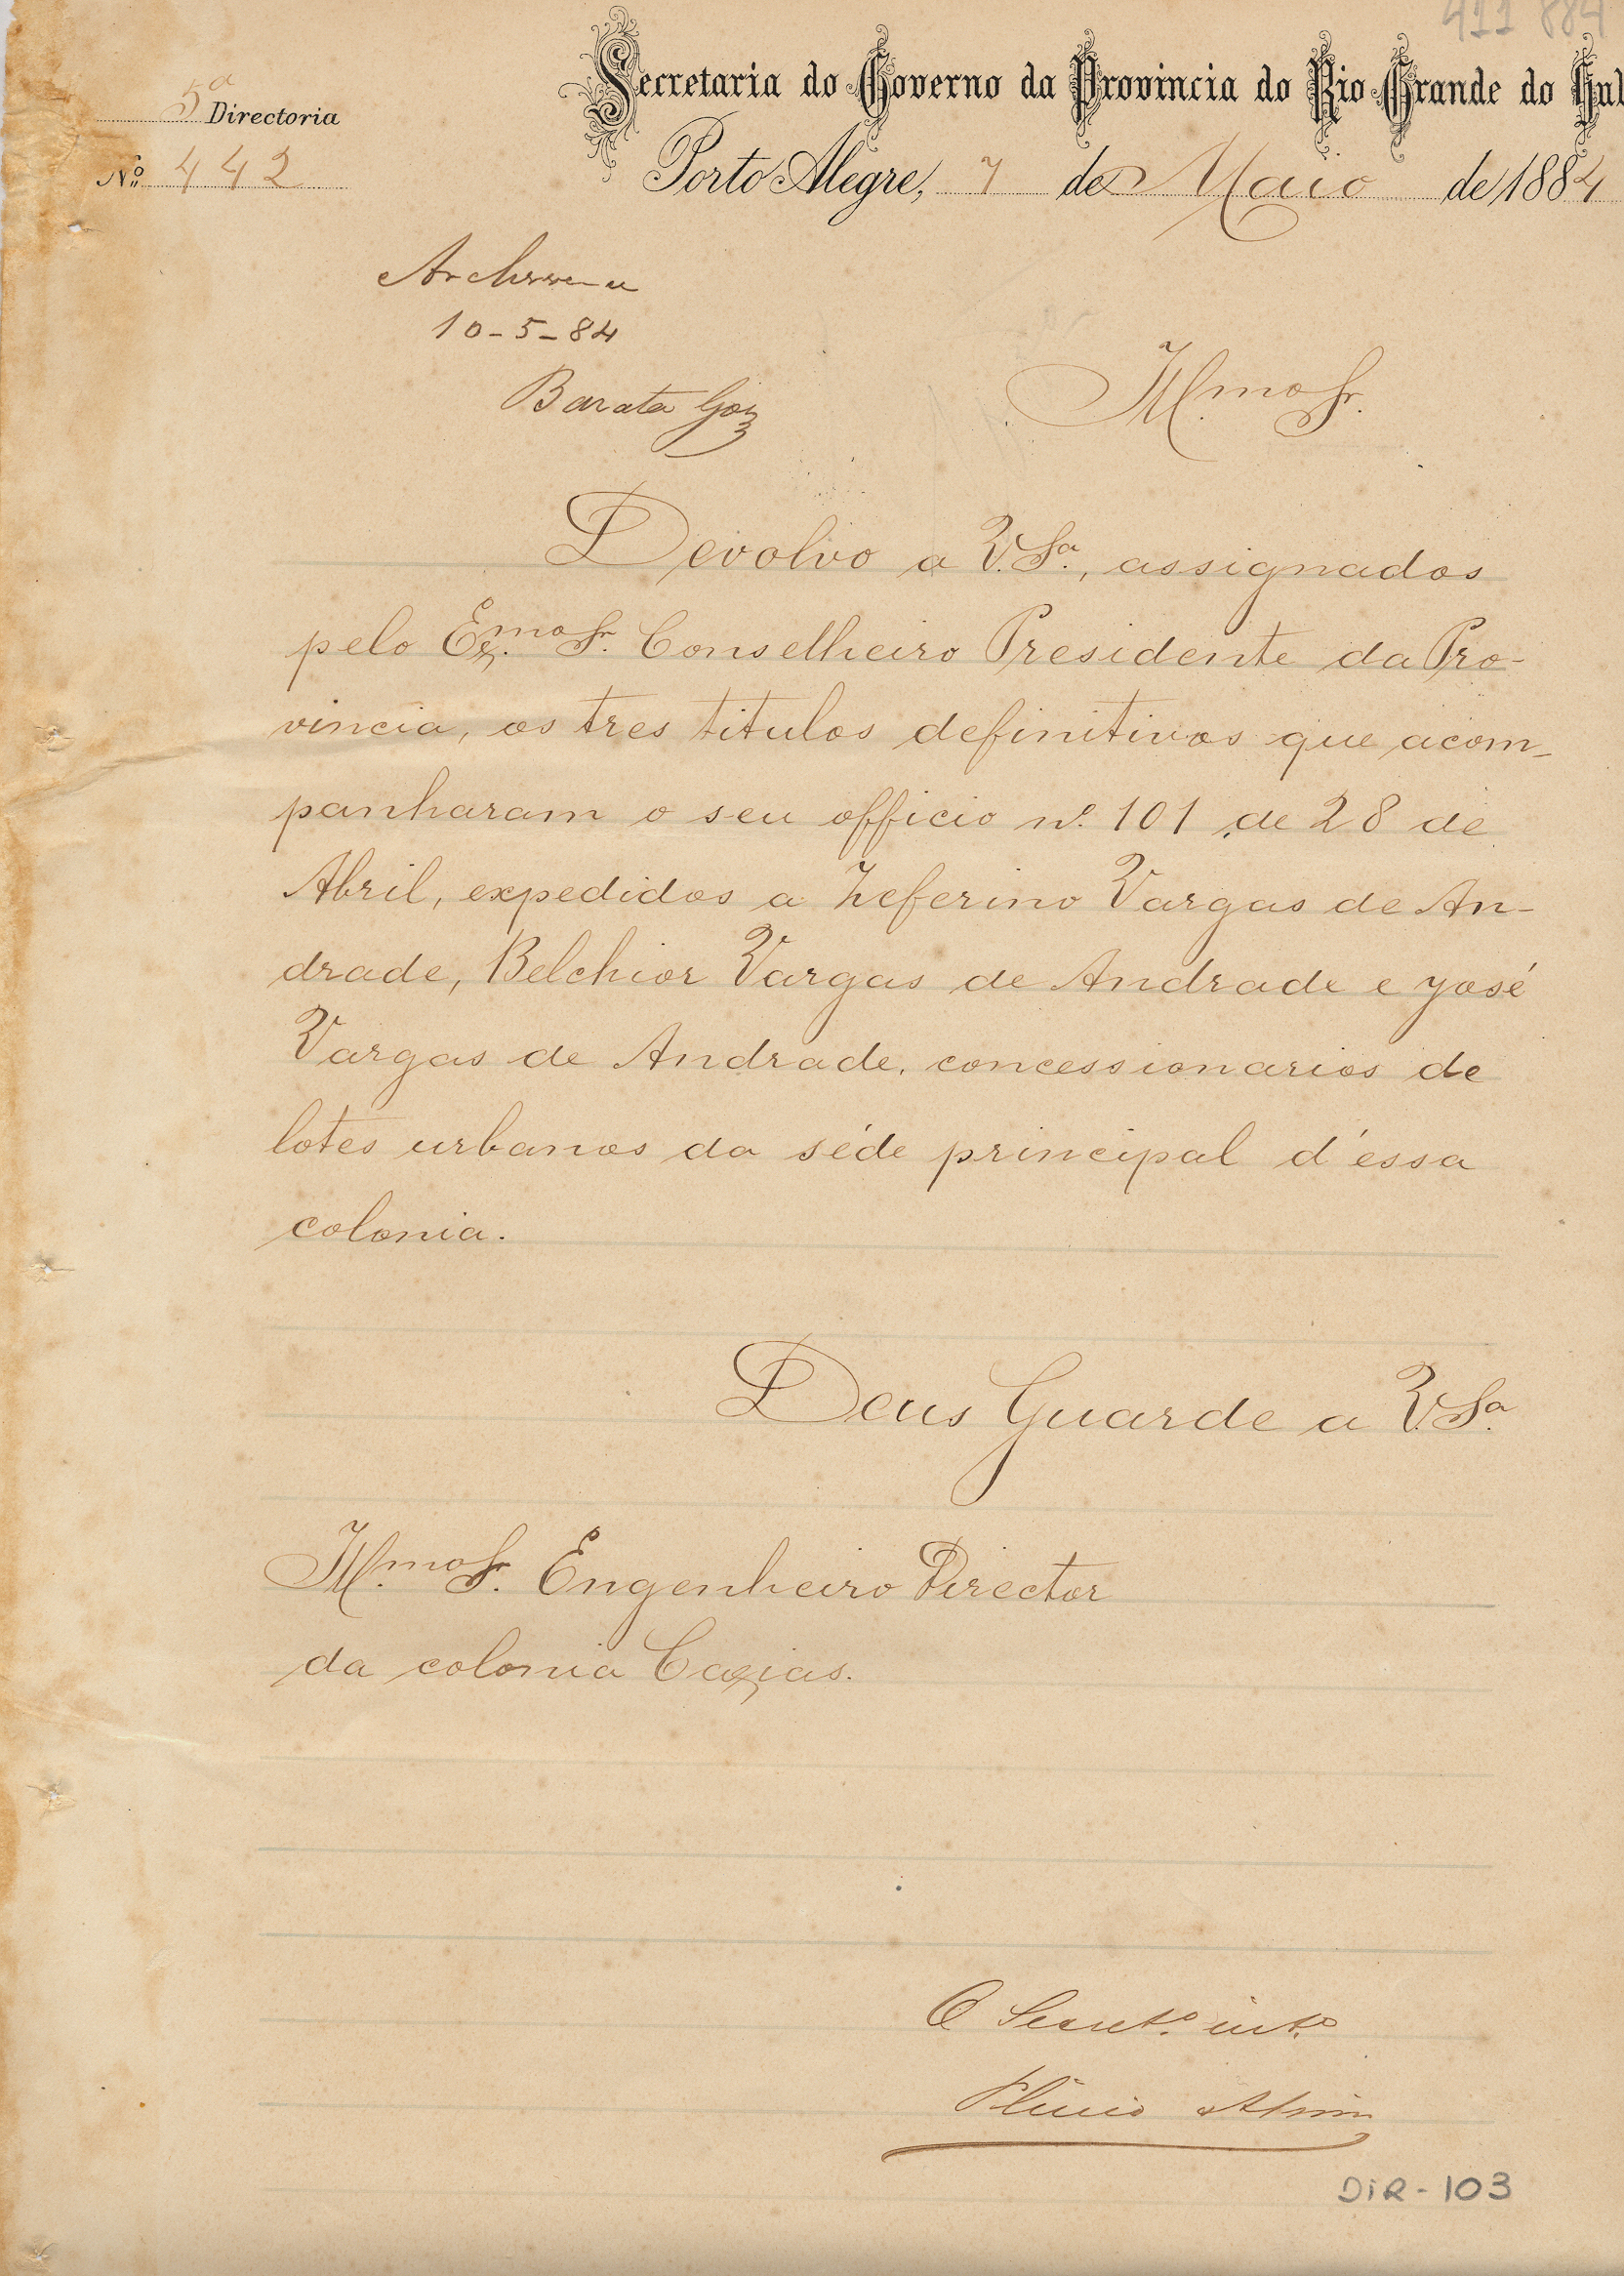 411 884
Secretaria do Governo da Provincia do Rio Grande do Sul
5ª Directoria
Nº 442
Porto Alegre, 7 de Maio de 1884
Archive-se
10-5-84
Barata Góz
Illmo Sr.
Devolvo a V. Sª., assignados
pelo Exmo. Sr. Conselheiro Presidente da Pro-
vincia, os tres titulos definitivos que acom-
panharam o seu officio nº. 101 de 28 de
Abril, expedidos a Zeferino Vargas de An-
drade, Belchior Vargas de Andrade e José
Vargas de Andrade, concessionarios de
lotes urbanos da séde principal d'essa
colonia.
Deus Guarde a V. Sª.
Illmo. Sr. Engenheiro Director
da colonia Caxias.
O Secretº. intº.
Plinio Alvim
DIR-103